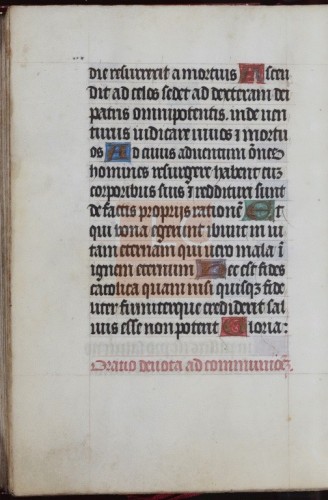 die resurrexit a mortuis Ascen
dit ad celos sedet ad dexteram dei
patris omnipotentis. inde uen
turus iudicare uiuos ⁊ mortu
os Ad cuius aduentum ōnes
homines resurgere habent cuʒ
corporibus suis ⁊ reddituri sunt
de factis proprijs rationē Et
qui bona egerunt ibunt in ui
tam eternam qui uero mala ī
ignem eternum Hec est fides
catolica quam nisi quisqʒ fide
liter firmiterque crediderit sal
uus esse non poterit Gloria:
Oratio deuota ad communionē.